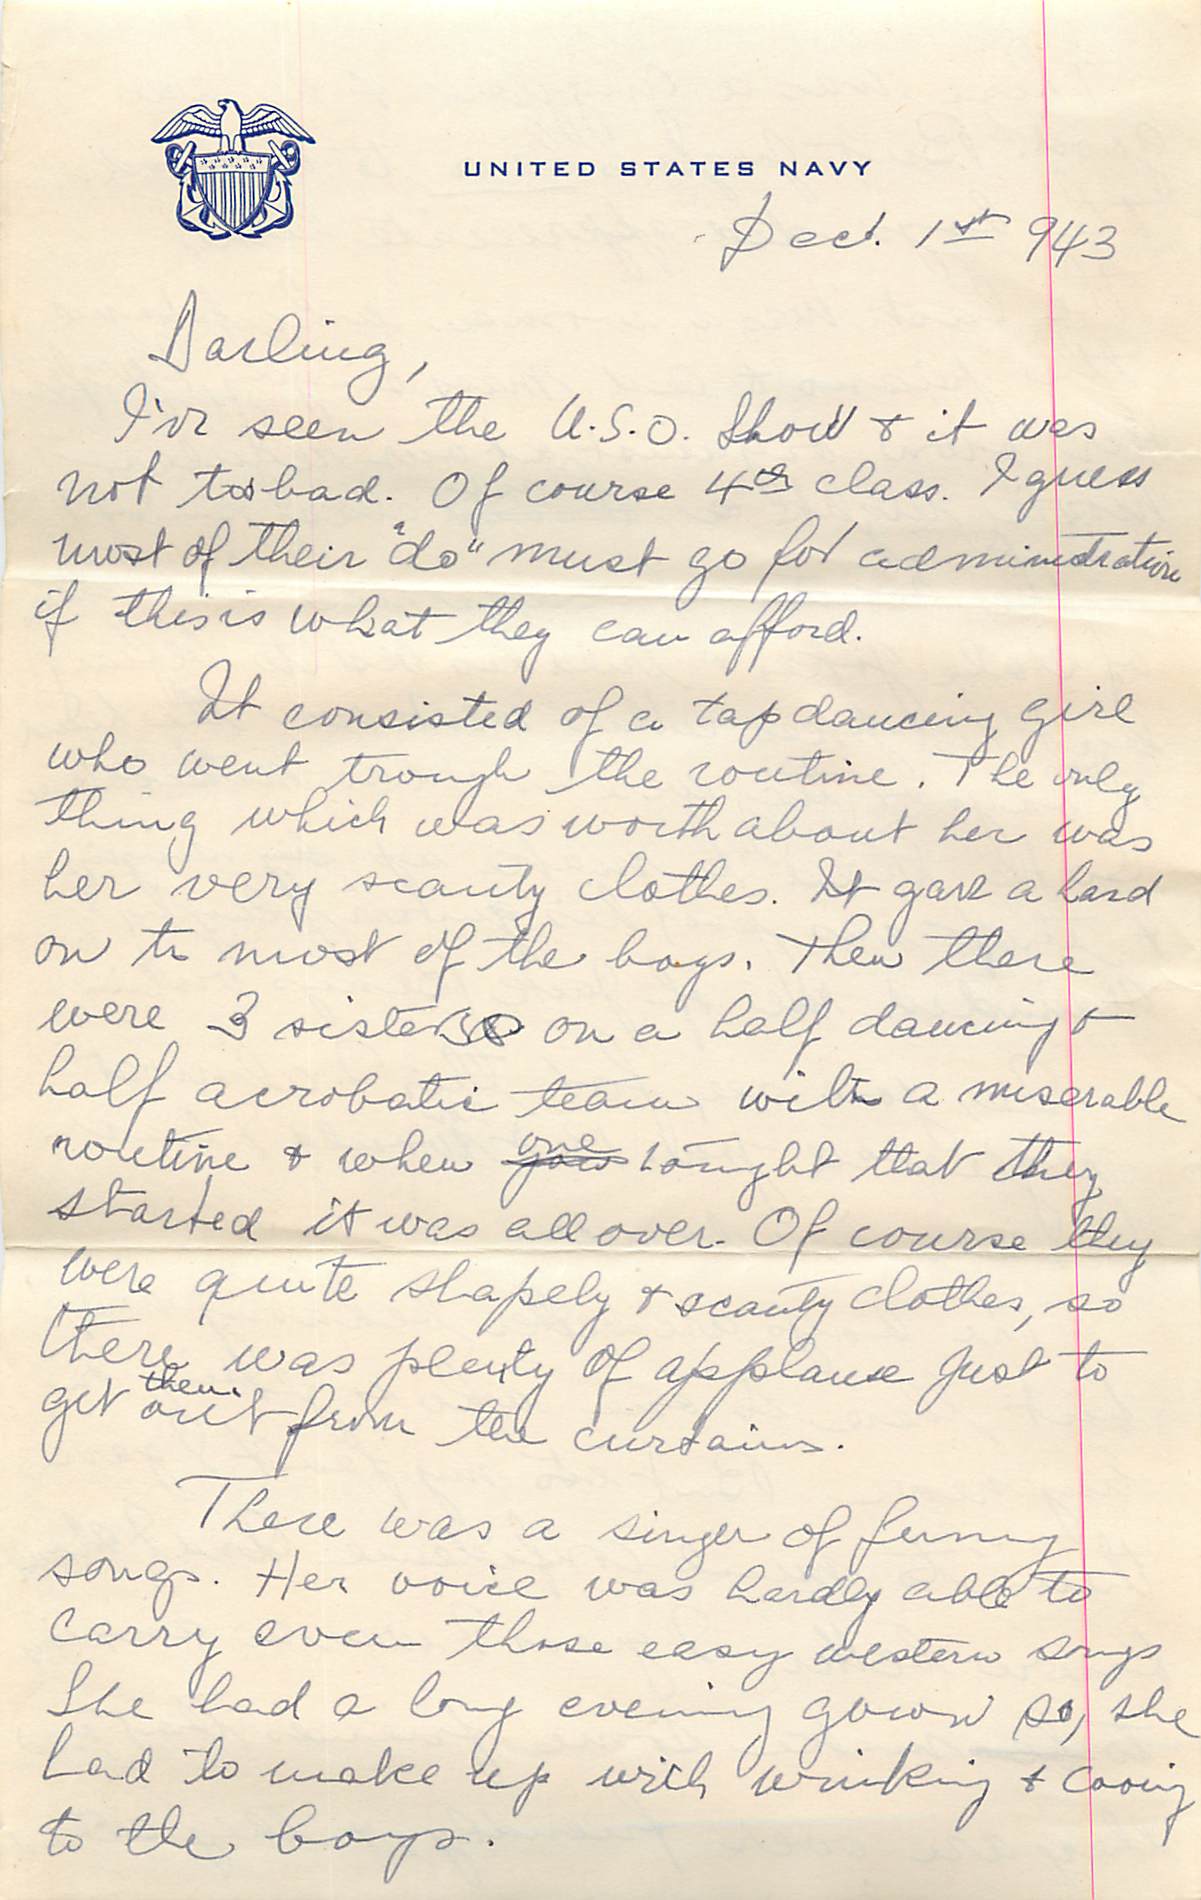 UNITED STATES NAVY
Dec. 1st 943
Darling,
I've seen the U.S.O. Show & it was
not to bad. Of course 4th class. I guess
most of their "do" must go for administration
if this is what they can afford.
It consisted of a tap dancing girl
who went trough the routine. The only
thing which was worth about her was
her very scanty clothes. It gave a hard
on to most of the boys. Then there
were 3 sisters on a half dancing &
half acrobatic team with a miserable
routine & when one tought that they
started it was all over. Of course they
were quite shapely & scanty clothes, so
there was plenty of applause just to
get them out from the curtains.
There was a singer of funny
songs. Her voice was hardly able to
carry even those easy western songs
She had a long evening gown so, she
had to make up with winking & cooing
to the boys.